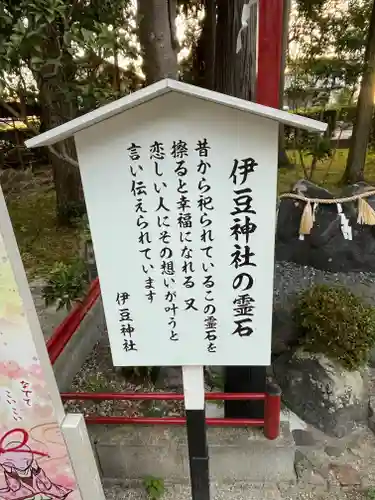 伊豆神社の霊石
昔から祀られているこの霊石を
擦ると幸福になれる 又
恋しい人にその想いが叶うと
言い伝えられています
伊豆神社
なでて
こいこい